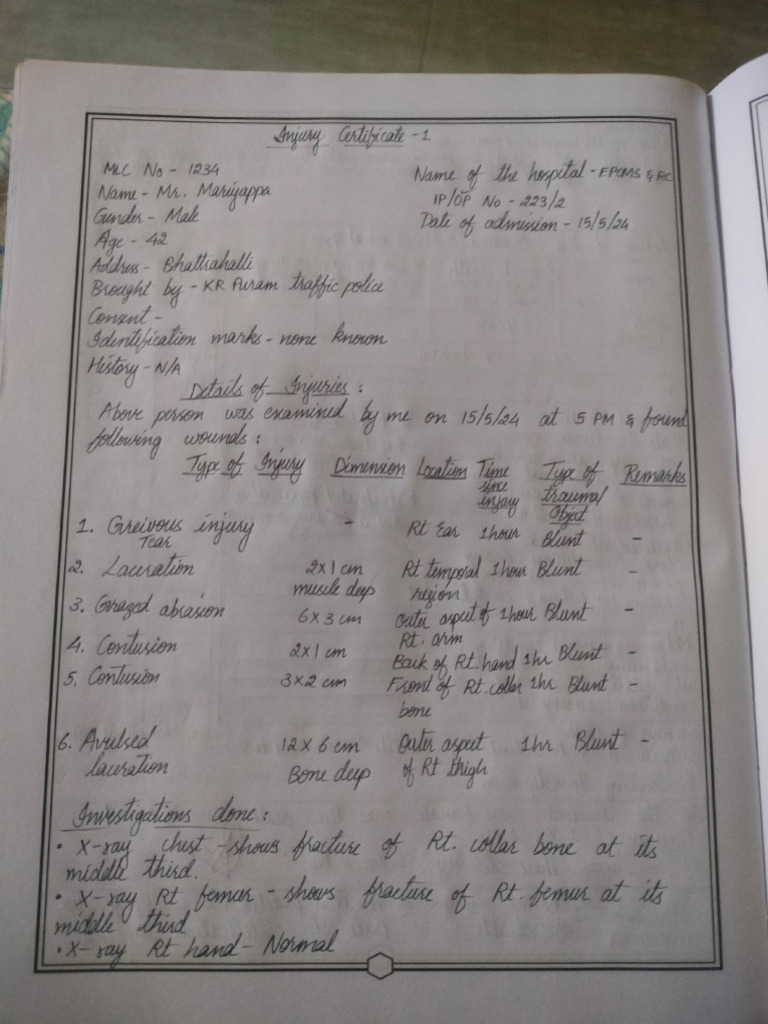 Injury Certificate - 1
MLC No - 1234
Name of the hospital - EPCMS & RC
Name - Mr. Mariyappa
IP/OP No - 223/2
Gender - Male
Date of admission - 15/5/24
Age - 42
Address - Bhattrahalli
Brought by - KR Puram traffic police
Consent -
Identification marks - none known
History - N/A
Details of Injuries :
Above person was examined by me on 15/5/24 at 5 PM & found
following wounds :
Type of Injury Dimension Location Time since injury Type of trauma/ Object Remarks
1. Greivous injury - Rt Ear 1 hour Blunt -
Tear
2. Laceration 2 x 1 cm Rt temporal 1 hour Blunt -
muscle deep region
3. Grazed abrasion 6 x 3 cm Outer aspect of 1 hour Blunt -
Rt. arm
4. Contusion 2 x 1 cm Back of Rt. hand 1 hr Blunt -
5. Contusion 3 x 2 cm Front of Rt. collar 1 hr Blunt -
bone
6. Avulsed 12 x 6 cm Outer aspect 1 hr Blunt -
laceration Bone deep of Rt thigh
Investigations done :
• X-ray chest - shows fracture of Rt. collar bone at its
middle third.
• X-ray Rt femur - shows fracture of Rt. femur at its
middle third
• X-ray Rt hand - Normal